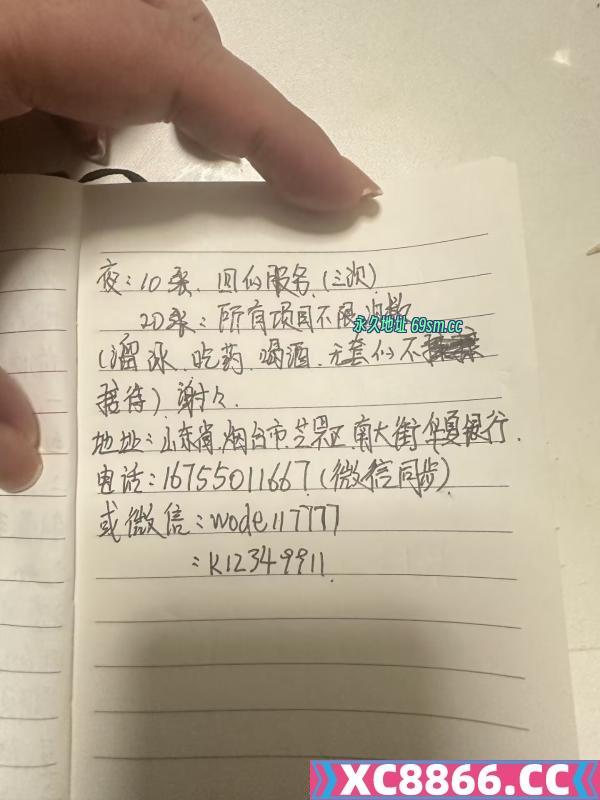 夜:10张.服务(三次)
20张:所有项目不限
永久地址 69sm.cc
(溜冰.吃药.喝酒.无套的不
接待)谢谢.
地址:山东省.烟台市.芝罘区.南大街华夏银行.
电话:16755011667(微信同步)
或微信:wode117777
:K12349911.
XC8866.CC